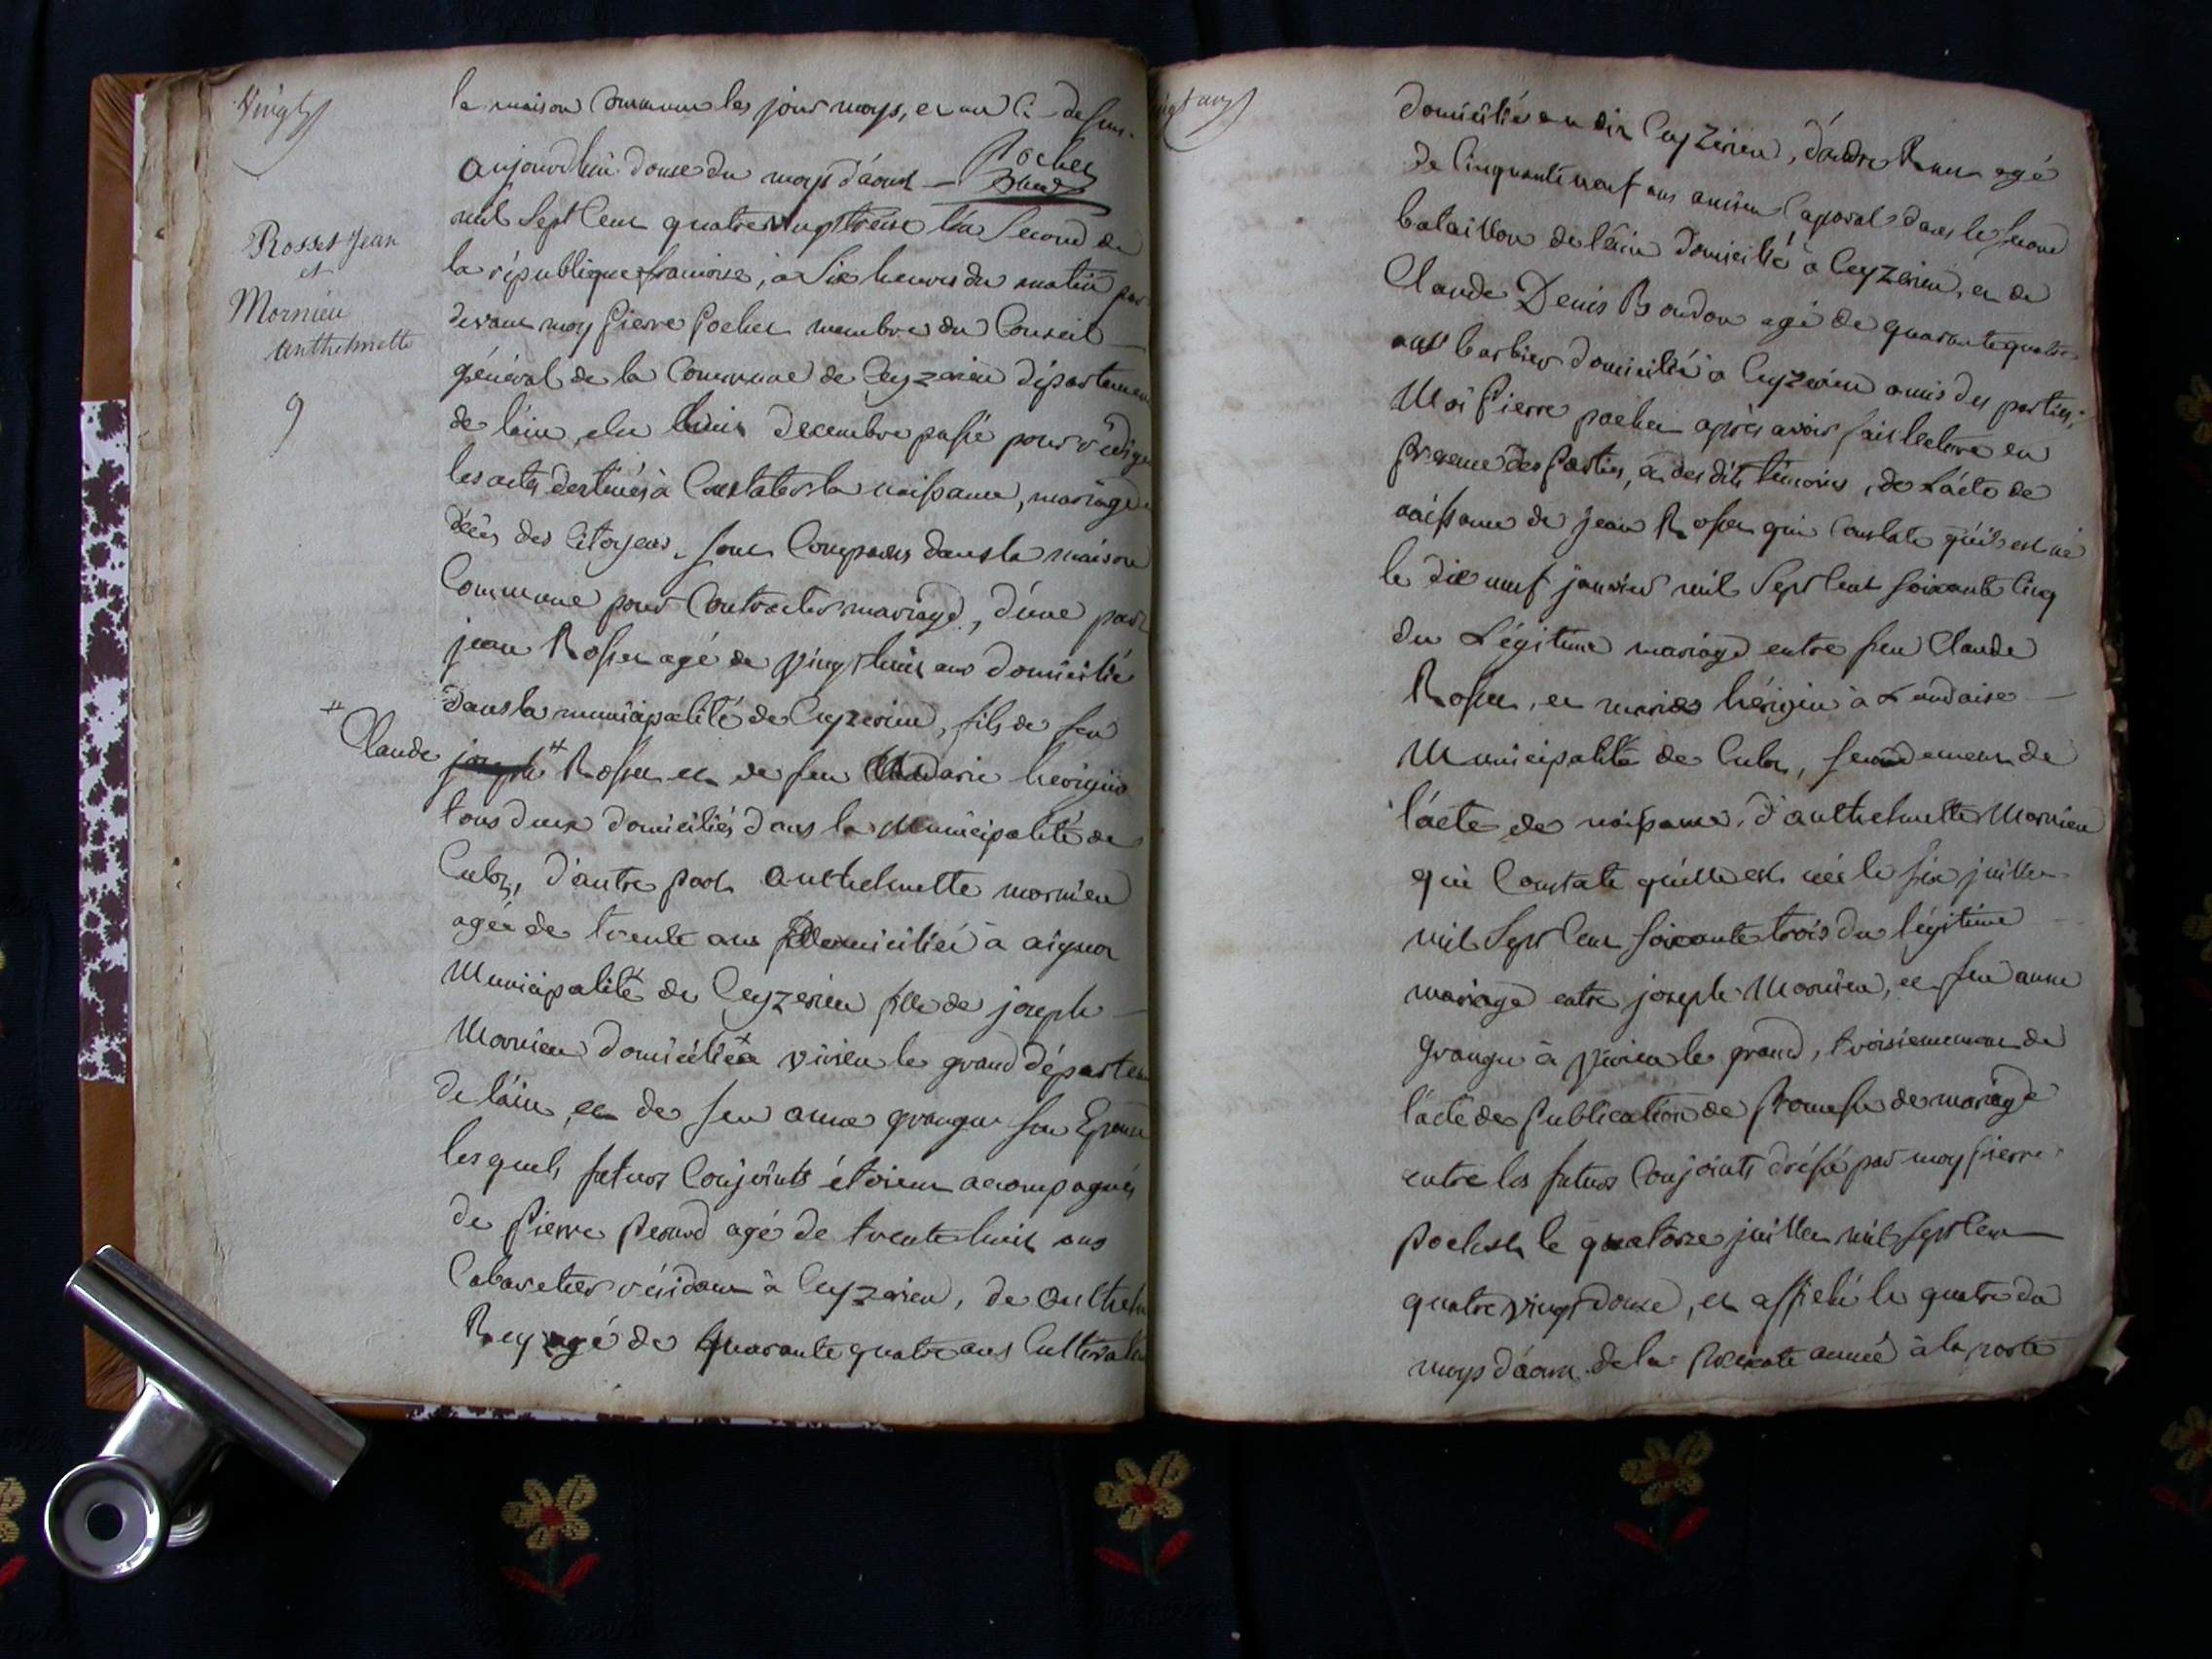 Vingt
la maison Commune les jour moys, et an Ci-dessus.
Pochet
aujourdhui douse du moys d'aoust —
mil Sept Cent quatrevingttreise l'an Second de
Rosset Jean
et
Mornieu
anthelmette
9
la république francoise, a Six heures du matin par
devant moy pierre pochet membre du Conseil —
général de la Commune de Ceyzerieu département
de l'ain, elu le huit decembre passé pour rédiger
les actes destinés à Constater la naissance, mariage
décès des Citoyens, sont Comparus dans la maison
Commune pour Contracter mariage, d'une part
jean Rosset agé de vingt huit ans domicilié
dans la municipalité de Ceyzerieu, fils de feu
# Claude joseph # Rosset et de feu Marie herigin
tous deux domiciliés dans la Municipalité de
Culoz, d'autre part anthelmette mornieu
agée de trente ans domiciliée à aignoz
Municipalité de Ceyzerieu fille de joseph —
Mornieu domicilié à virieu le grand département
de l'ain, et de feu anne grangue son Epouse
lesquels futurs Conjoints étoient accompagnés
de pierre perard agé de trente huit ans
Cabaretier résidant à Ceyzerieu, de anthelme
Rey agé de quarante quatre ans Cultivateur
vingt un
domicilié au dit Ceyzerieu, d'andré agé
de Cinquante neuf ans ancien Caporal dans le second
bataillon de l'ain domicilié à Ceyzerieu, et de
Claude Denis Boudon agé de quarante quatre
ans barbier domicilié à Ceyzerieu amis des parties;
Moi pierre pochet après avoir fait lecture en
presence des parties, et des dits témoins, de l'acte de
naissance de jean Rosset qui Constate qu'il est né
le dix neuf janvier mil Sept Cent soixante Cinq
du Légitime mariage entre feu Claude
Rosset, et marie hérigin à Landaise —
Municipalité de Culoz, secondement de
l'acte de naissance, d'anthelmette Mornieu
qui Constate qu'elle est née le six juillet
mil Sept Cent soixante trois du légitime
mariage entre joseph Mornieu, et feu anne
grangue à virieu le grand, troisiemement de
l'acte de publication de promesse de mariage
entre les futurs Conjoints dréssé par moy pierre
pochet le quatorze juillet mil Sept Cent
quatre vingt douse, et affiché le quatre du
moys d'aoust de la presente année à la porte